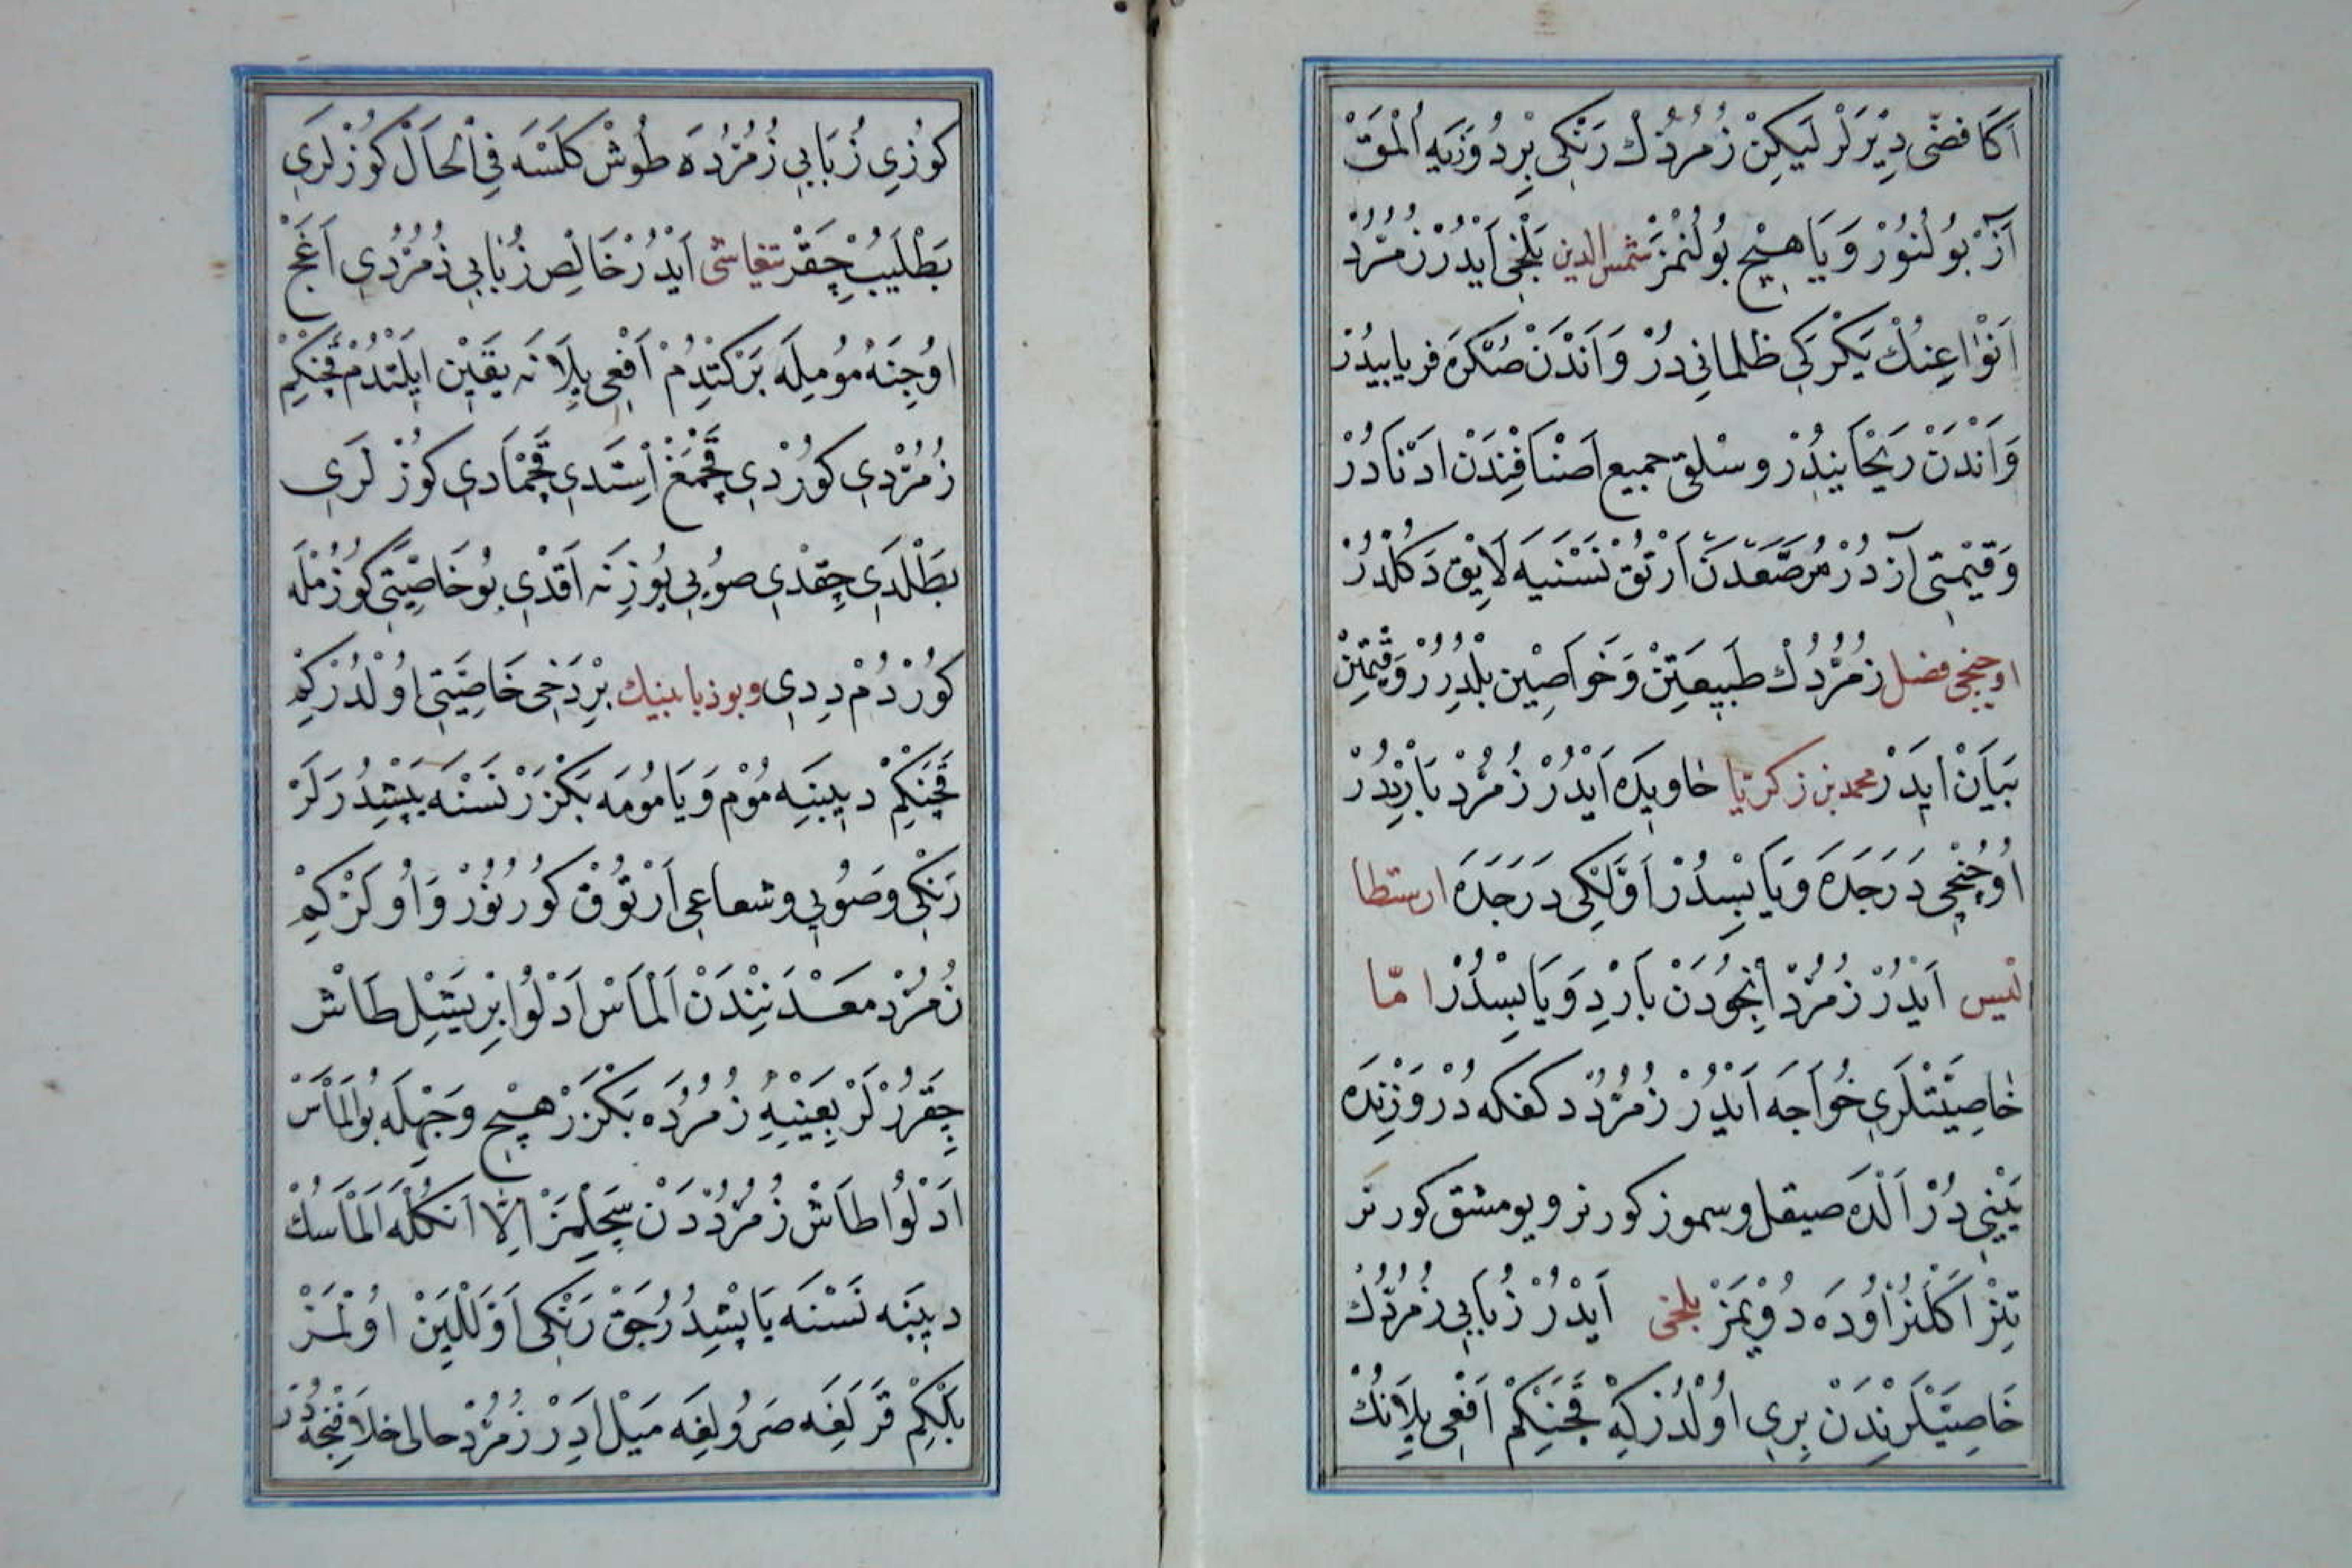 اَكَا فضّى دِيْرَلَرْ لَيكِنْ زُمُرُدُكْ رَنْكِى بِرْ دُوزَيَه اُلْمَقْ
آزْ بُولُنُورْ وَيَا هِيْچ بُولُنْمَزْ شمس الدين بَلْخِى اَيْدُرْ زُمُرُّدْ
اَنْوَاعِنُكْ يَكْرَكِى ظلمانى دُرْ وَاَنْدَنْ صُكْرَه فريابيدُرْ
وَاَنْدَنْ رَيْحَانِيدُرْ وسْلقى جميع اَصْنَافِنْدَنْ اَدْنَادُرْ
وَقِيْمَتِى آزْدُرْ مُرَصَّعْدَنْ اَرْتُقْ نَسْنَيَه لَايِقْ دَكُلْدُرْ
اوچنجى فصل زُمُرُّدُكْ طَبِيعَتِنْ وَخَوَاصِيْن بِلْدُرُرْ وَقِيمَتِنْ
بَيَانْ اِيدَرْ محمد بن زكريّا خاويدَه اَيْدُرْ زُمُرُّدْ بَارِدْدُرْ
اُوچُنْجِى دَرَجَدَه وَيَابِسْدُرْ اَوَّلْكِى دَرَجَدَه ارستطا
ليس اَيْدُرْ زُمُرُّدْ اِنْجُودَنْ بَارِدْ وَيَابِسْدُرْ امّا
خاصِيَّتْلَرِى خُواَجَه اَيْدُرْ زُمُرُّدْ كفكه دُرْ وَزْنِدَه
يَيْنِى دُرْ اَلْدَه صيقل وسموز كورنر ويومشق كورنر
تِيزْ اَكْلَنُرْ اُودَه دُوْيَمَزْ بلخى اَيْدُرْ زُبَابِى زُمُرُّدُكْ
خَاصِيَّتْلَرِنْدَنْ بِرِى اُوْلْدُرْ كِه قَچَنْكِمْ اَفْعِى يِلَانُكْ
كُوزِى زُبَابِى زُمُرُّدَه طُوشْ كَلْسَه فِى الْحَالْ كُوزْلَرِى
بَطْلَيُبْ چِقَرْ تيغاشى اَيْدُرْ خَالِصْ زُبَابِى زُمُرُّدِى اَغَچْ
اُوجِنَه مُومِيلَه بَرْكِتْدِمْ اَفْعِى يِلَانَه يَقِيْن اِيلَتْدُمْ قَچَنْكِمْ
زُمُرُّدِى كُورْدِى قَچْمَغْ اِسْتَدِى قَچْمَادِى كُوزْلَرِى
بَطْلَدِى چِقْدِى صُويِى يُوزِنَه اَقْدِى بُو خَاصِيَّتِى كُوزُمْلَه
كُورْدُمْ دِدِى وبو ذبابينيك بِرْ دَخِى خَاصِيَّتِى اُوْلْدُرْ كِمْ
قَچَنْكِمْ دِيبِنَه مُومْ وَيَا مُومَه بَكْزَرْ نَسْنَه يَپِشْدُرَلَرْ
رَنْكِى وصُويِى وشعاعى اَرْتُوقْ كُورُنُورْ وَاُوكَرْ كِمْ
زُمُرُّدْ مَعْدَنِنْدَنْ اَلْمَاسْ اَدْلُو بِرْ يَشِيْل طَاشْ
چِقَرُرْلَرْ بِعَيْنِهِ زُمُرُّدَه بَكْزَرْ هِيْچ وَجْهِلَه بُو اَلْمَاسْ
اَدْلُو طَاشْ زُمُرُّدْدَنْ سَچِلْمَزْ اِلَّا اَنُكْلَه اَلْمَاسُكْ
دِيبِنَه نَسْنَه يَاپِشْدُرُجَقْ رَنْكِى اَوَّلْلَيِنْ اُوْلْمَزْ
بَلْكِمْ قَرَلِغَه صَرُولِغَه مَيْل اِدَرْ زُمُرُّدْ حالى خلافنجه دُرْ